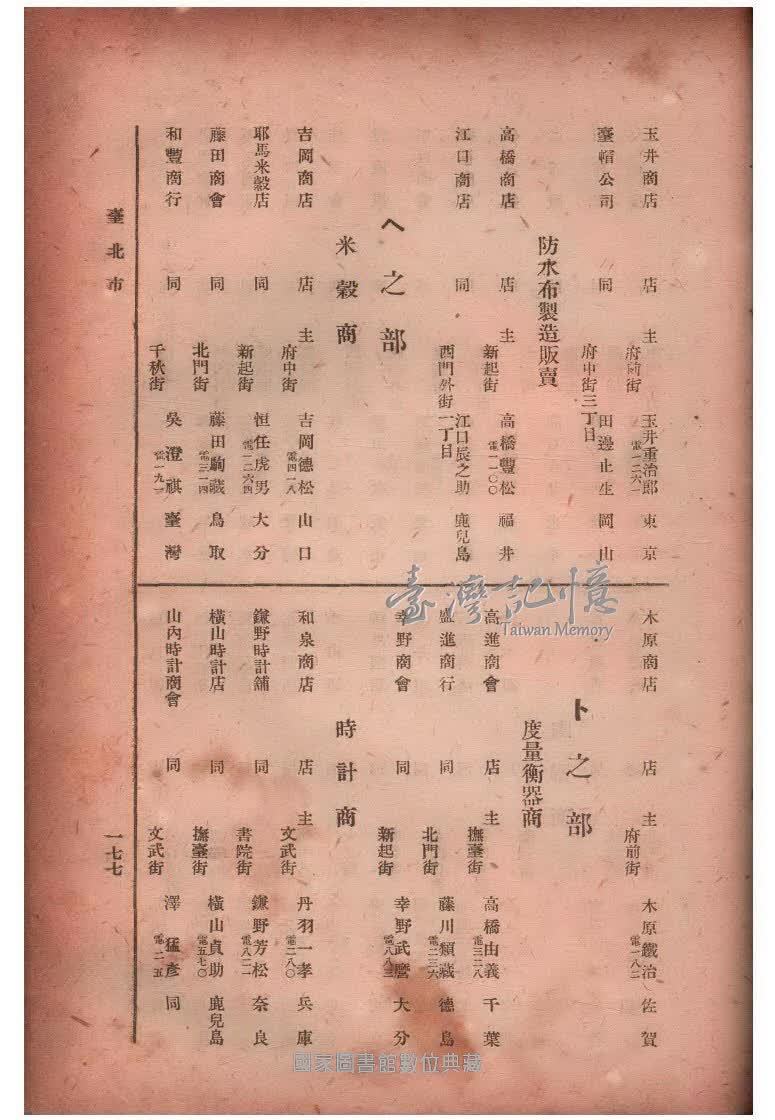 玉井商店 店主 府前街 玉井重治郎 電一二六一 東京
臺帽公司 同 府中街三丁目 田邊止生 岡山
防水布製造販賣
高橋商店 店主 新起街 高橋豐松 電一一〇〇 福井
江口商店 同 西門外街一丁目 江口辰之助 鹿兒島
ヘ之部
米穀商
吉岡商店 店主 府中街 吉岡德松 電四一八 山口
耶馬米穀店 同 新起街 恒任虎男 電一二六四 大分
藤田商會 同 北門街 藤田駒藏 電三一四 鳥取
和豐商行 同 千秋街 吳澄祺 電一九一 臺灣
木原商店 店主 府前街 木原鐵治 電一八二 佐賀
ト之部
度量衡器商
高進商會 店主 撫臺街 高橋由義 電三二八 千葉
盛進商行 同 北門街 藤川類藏 電二三六 德島
幸野商會 同 新起街 幸野武麿 電八八三 大分
時計商
和泉商店 店主 文武街 丹羽一孝 電二八〇 兵庫
鎌野時計舖 同 書院街 鎌野芳松 電八二一 奈良
橫山時計店 同 撫臺街 橫山貞助 電五七〇 鹿兒島
山內時計商會 同 文武街 澤猛彥 電二一五 同
臺北市
一七七
臺灣記憶
Taiwan Memory
國家圖書館數位典藏